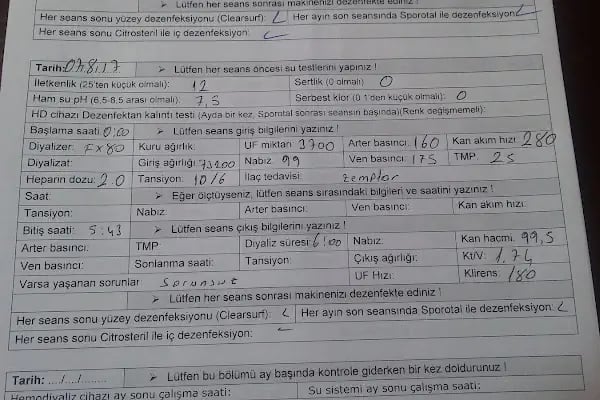 ➢ Lütfen her seans sonrası makinenizi dezenfekte ediniz !
Her seans sonu yüzey dezenfeksiyonu (Clearsurf): Her ayın son seansında Sporotal ile dezenfeksiyon:
Her seans sonu Citrosteril ile iç dezenfeksiyon:
Tarih: ➢ Lütfen her seans öncesi su testlerini yapınız !
İletkenlik (25'ten küçük olmalı): 12 Sertlik (0 olmalı) 0
Ham su pH (6,5-8,5 arası olmalı): 7,5 Serbest klor (0.1'den küçük olmalı): 0
HD cihazı Dezenfektan kalıntı testi (Ayda bir kez, Sporotal sonrası seansın başında)(Renk değişmemeli):
Başlama saati 0:00 ➢ Lütfen seans giriş bilgilerini yazınız !
Diyalizer: FX80 Kuru ağırlık: UF miktarı 3700 Arter basıncı: 160 Kan akım hızı: 280
Diyalizat: Giriş ağırlığı: 73200 Nabız: 99 Ven basıncı: 175 TMP: 25
Heparin dozu: 2.0 Tansiyon: 10/6 İlaç tedavisi: zemplar
Saat: ➢ Eğer ölçtüyseniz, lütfen seans sırasındaki bilgileri ve saatini yazınız !
Tansiyon: Nabız: Arter basıncı: Ven basıncı: Kan akım hızı:
Bitiş saati: 5:43 ➢ Lütfen seans çıkış bilgilerini yazınız !
Arter basıncı: TMP Diyaliz süresi: 6:00 Nabız: Kan hacmi: 99,5
Ven basıncı: Sonlanma saati: Tansiyon: Çıkış ağırlığı: Kt/V: 1.74
Varsa yaşanan sorunlar Sorunsuz UF Hızı: Klirens: 180
➢ Lütfen her seans sonrası makinenizi dezenfekte ediniz !
Her seans sonu yüzey dezenfeksiyonu (Clearsurf): Her ayın son seansında Sporotal ile dezenfeksiyon:
Her seans sonu Citrosteril ile iç dezenfeksiyon:
Tarih: .../..../........ ➢ Lütfen bu bölümü ay başında kontrole giderken bir kez doldurunuz !
Hemodiyaliz cihazı ay sonu çalışma saati: Su sistemi ay sonu çalışma saati: